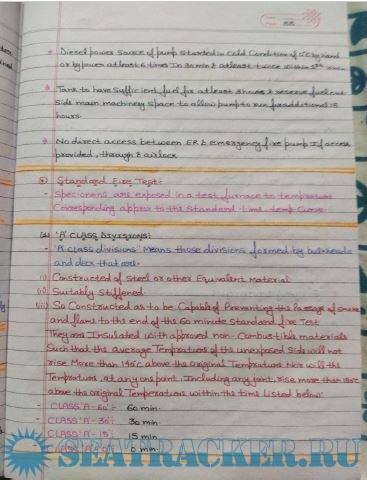 Date
Page 55
Diesel power source of pump started in Cold Condition of 0°C by hand
or by power atleast 6 times In 30 min & atleast twice within 1st
Tank to have sufficient fuel for at least 3 hours & reserve fuel out
side main machinery space to allow pump to run for additional 15
hours.
No direct access between ER & emergency fire pump If access
provided, through a airlock
Standard Fire Test:
- Specimens are exposed in a test furnace to temprature
Corresponding approx to the standard time-temp curve
"A" CLASS DIVISIONS:
- "A" class divisions" Means those divisions formed by bulkheads
and deck that are-
(i) Constructed of steel or other Equivalent Material
(ii) Suitably Stiffened
(iii) So Constructed as to be Capable of Preventing the Passage of smoke
and flame to the end of the 60 minute Standard fire Test
They are Insulated with approved non-Combustible materials
Such that the average Temprature of the unexposed Side will not
rise More than 140°C above the original Temprature Nor will the
Temprature, at any one point, Including any joint, rise more than 180°C
above the original Temperature within the time listed below:
CLASS 'A-60': 60 min.
CLASS 'A-30': 30 min.
CLASS 'A-15': 15 min
CLASS 'A-0': 0 min.
SEATRACKER.RU